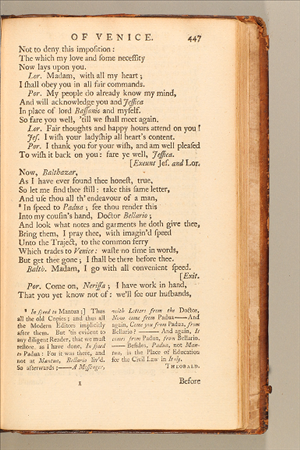 OF VENICE. 447
Not to deny this imposition :
The which my love and some necessity
Now lays upon you.
Lor. Madam, with all my heart ;
I shall obey you in all fair commands.
Por. My people do already know my mind,
And will acknowledge you and Jessica
In place of lord Bassanio and myself.
So fare you well, 'till we shall meet again.
Lor. Fair thoughts and happy hours attend on you !
Jes. I wish your ladyship all heart's content.
Por. I thank you for your wish, and am well pleased
To wish it back on you : fare ye well, Jessica.
[Exeunt Jes. and Lor.
Now, Balthazar,
As I have ever found thee honest, true,
So let me find thee still : take this same letter,
And use thou all th' endeavour of a man,
* In speed to Padua ; see thou render this
Into my cousin's hand, Doctor Bellario ;
And look what notes and garments he doth give thee,
Bring them, I pray thee, with imagin'd speed
Unto the Traject, to the common ferry
Which trades to Venice : waste no time in words,
But get thee gone ; I shall be there before thee.
Balth. Madam, I go with all convenient speed.
[Exit.
Por. Come on, Nerissa ; I have work in hand,
That you yet know not of : we'll see our husbands,
* In speed to Mantua ;] Thus
all the old Copies ; and thus all
the Modern Editors implicitly
after them. But 'tis evident to
any diligent Reader, that we must
restore, as I have done, In speed
to Padua : For it was there, and
not at Mantua, Bellario liv'd.
So afterwards ;——A Messenger,
with Letters from the Doctor,
New come from Padua——And
again, Came you from Padua, from
Bellario ? —— And again, It
comes from Padua, from Bellario.
—— Besides, Padua, not Mantua,
is the Place of Education
for the Civil Law in Italy.
THEOBALD.
Before